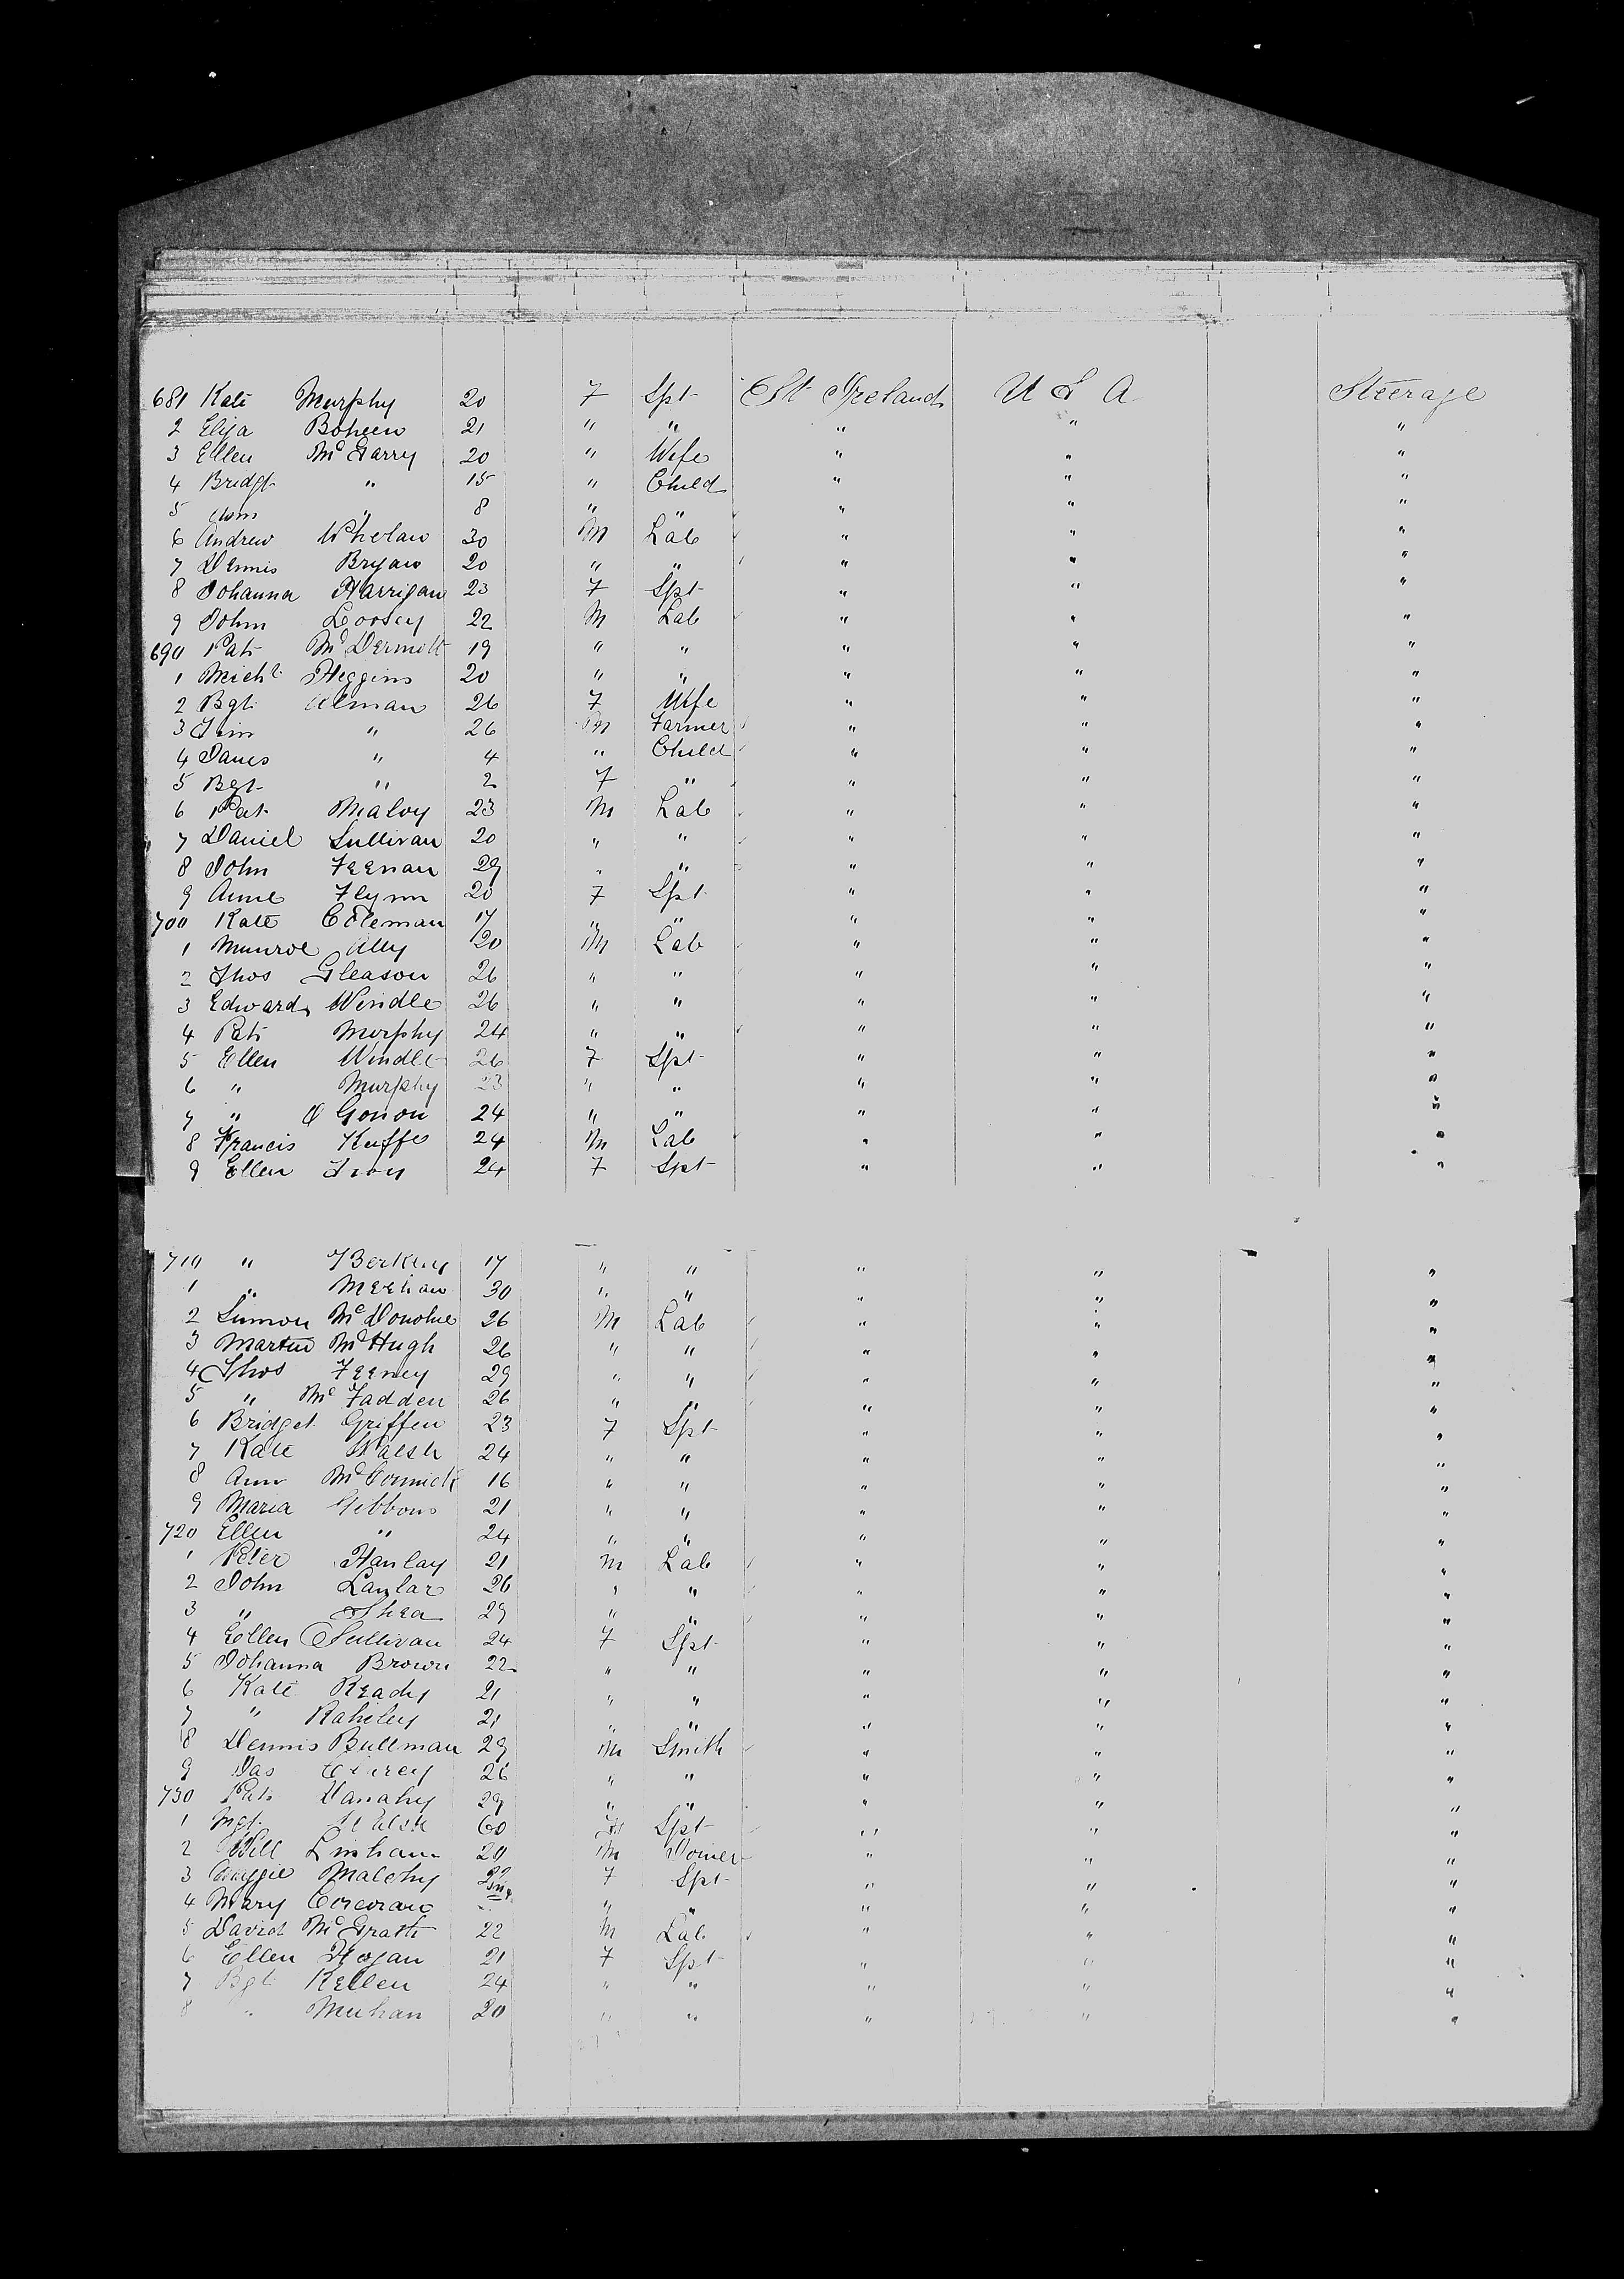 681 Kate Murphy 20 F Spt Ireland U S A Steerage
2 Eliza Boheen 21 " " " " "
3 Ellen McGarry 20 " Wife " " "
4 Bridgt " 15 " Child " " "
5 " 8 " " " " "
6 Andrew Whelan 30 M Lab " " "
7 Dennis Bryan 20 " " " " "
8 Johanna Harrigan 23 F Spt " " "
9 John Loosey 22 M Lab " " "
690 Pat McDermott 19 " " " " "
1 Michl Higgins 20 " " " " "
2 Bgt Alman 26 F Wife " " "
3 Tim " 26 M Farmer " " "
4 James " 4 " Child " " "
5 Bgt " 2 F " " " "
6 Pat Maloy 23 M Lab " " "
7 Daniel Sullivan 20 " " " " "
8 John Feenan 29 " " " " "
9 Anne Flynn 20 F Spt " " "
700 Kate Coleman 17 " " " " "
1 Munroe Ally 20 M Lab " " "
2 Thos Gleason 26 " " " " "
3 Edward Windle 26 " " " " "
4 Pat Murphy 24 " " " " "
5 Ellen Windle 26 F Spt " " "
6 " Murphy 23 " " " " "
7 " O Gonon 24 " " " " "
8 Francis Keeffe 24 M Lab " " "
9 Ellen Troy 24 F Spt " " "
710 " 17 " " " " "
1 " Meehan 30 " " " " "
2 Simon McDonohue 26 M Lab " " "
3 Martin McHugh 26 " " " " "
4 Thos Feeney 29 " " " " "
5 " McFadden 26 " " " " "
6 Bridget Griffen 23 F Spt " " "
7 Kate Walsh 24 " " " " "
8 Ann McCormick 16 " " " " "
9 Maria Gibbons 21 " " " " "
720 Ellen " 24 " " " " "
1 Peter Hanlay 21 M Lab " " "
2 John Lanlar 26 " " " " "
3 " Shea 29 " " " " "
4 Ellen Sullivan 24 F Spt " " "
5 Johanna Brown 22 " " " " "
6 Kate Ready 21 " " " " "
7 " Rahiley 21 " " " " "
8 Dennis Bullman 29 M Smith " " "
9 Jas 26 " " " " "
730 Pat Danahy 29 " " " " "
1 Mgt Walsh 60 Spt " " "
2 Will Linham 20 M Joiner " " "
3 Maggie Malchy F Spt " " "
4 Mary Corcoran " " " " "
5 David McGrath 22 M Lab " " "
6 Ellen Hogan 21 F Spt " " "
7 Bgt Kellen 24 " " " " "
8 " Meehan 20 " " " " "